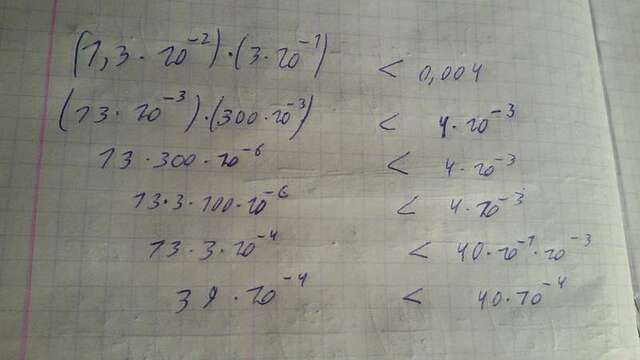 (1,3 · 10⁻²) · (3 · 10⁻¹) < 0,004
(13 · 10⁻³) · (300 · 10⁻³) < 4 · 10⁻³
13 · 300 · 10⁻⁶ < 4 · 10⁻³
13 · 3 · 100 · 10⁻⁶ < 4 · 10⁻³
13 · 3 · 10⁻⁴ < 40 · 10⁻¹ · 10⁻³
39 · 10⁻⁴ < 40 · 10⁻⁴